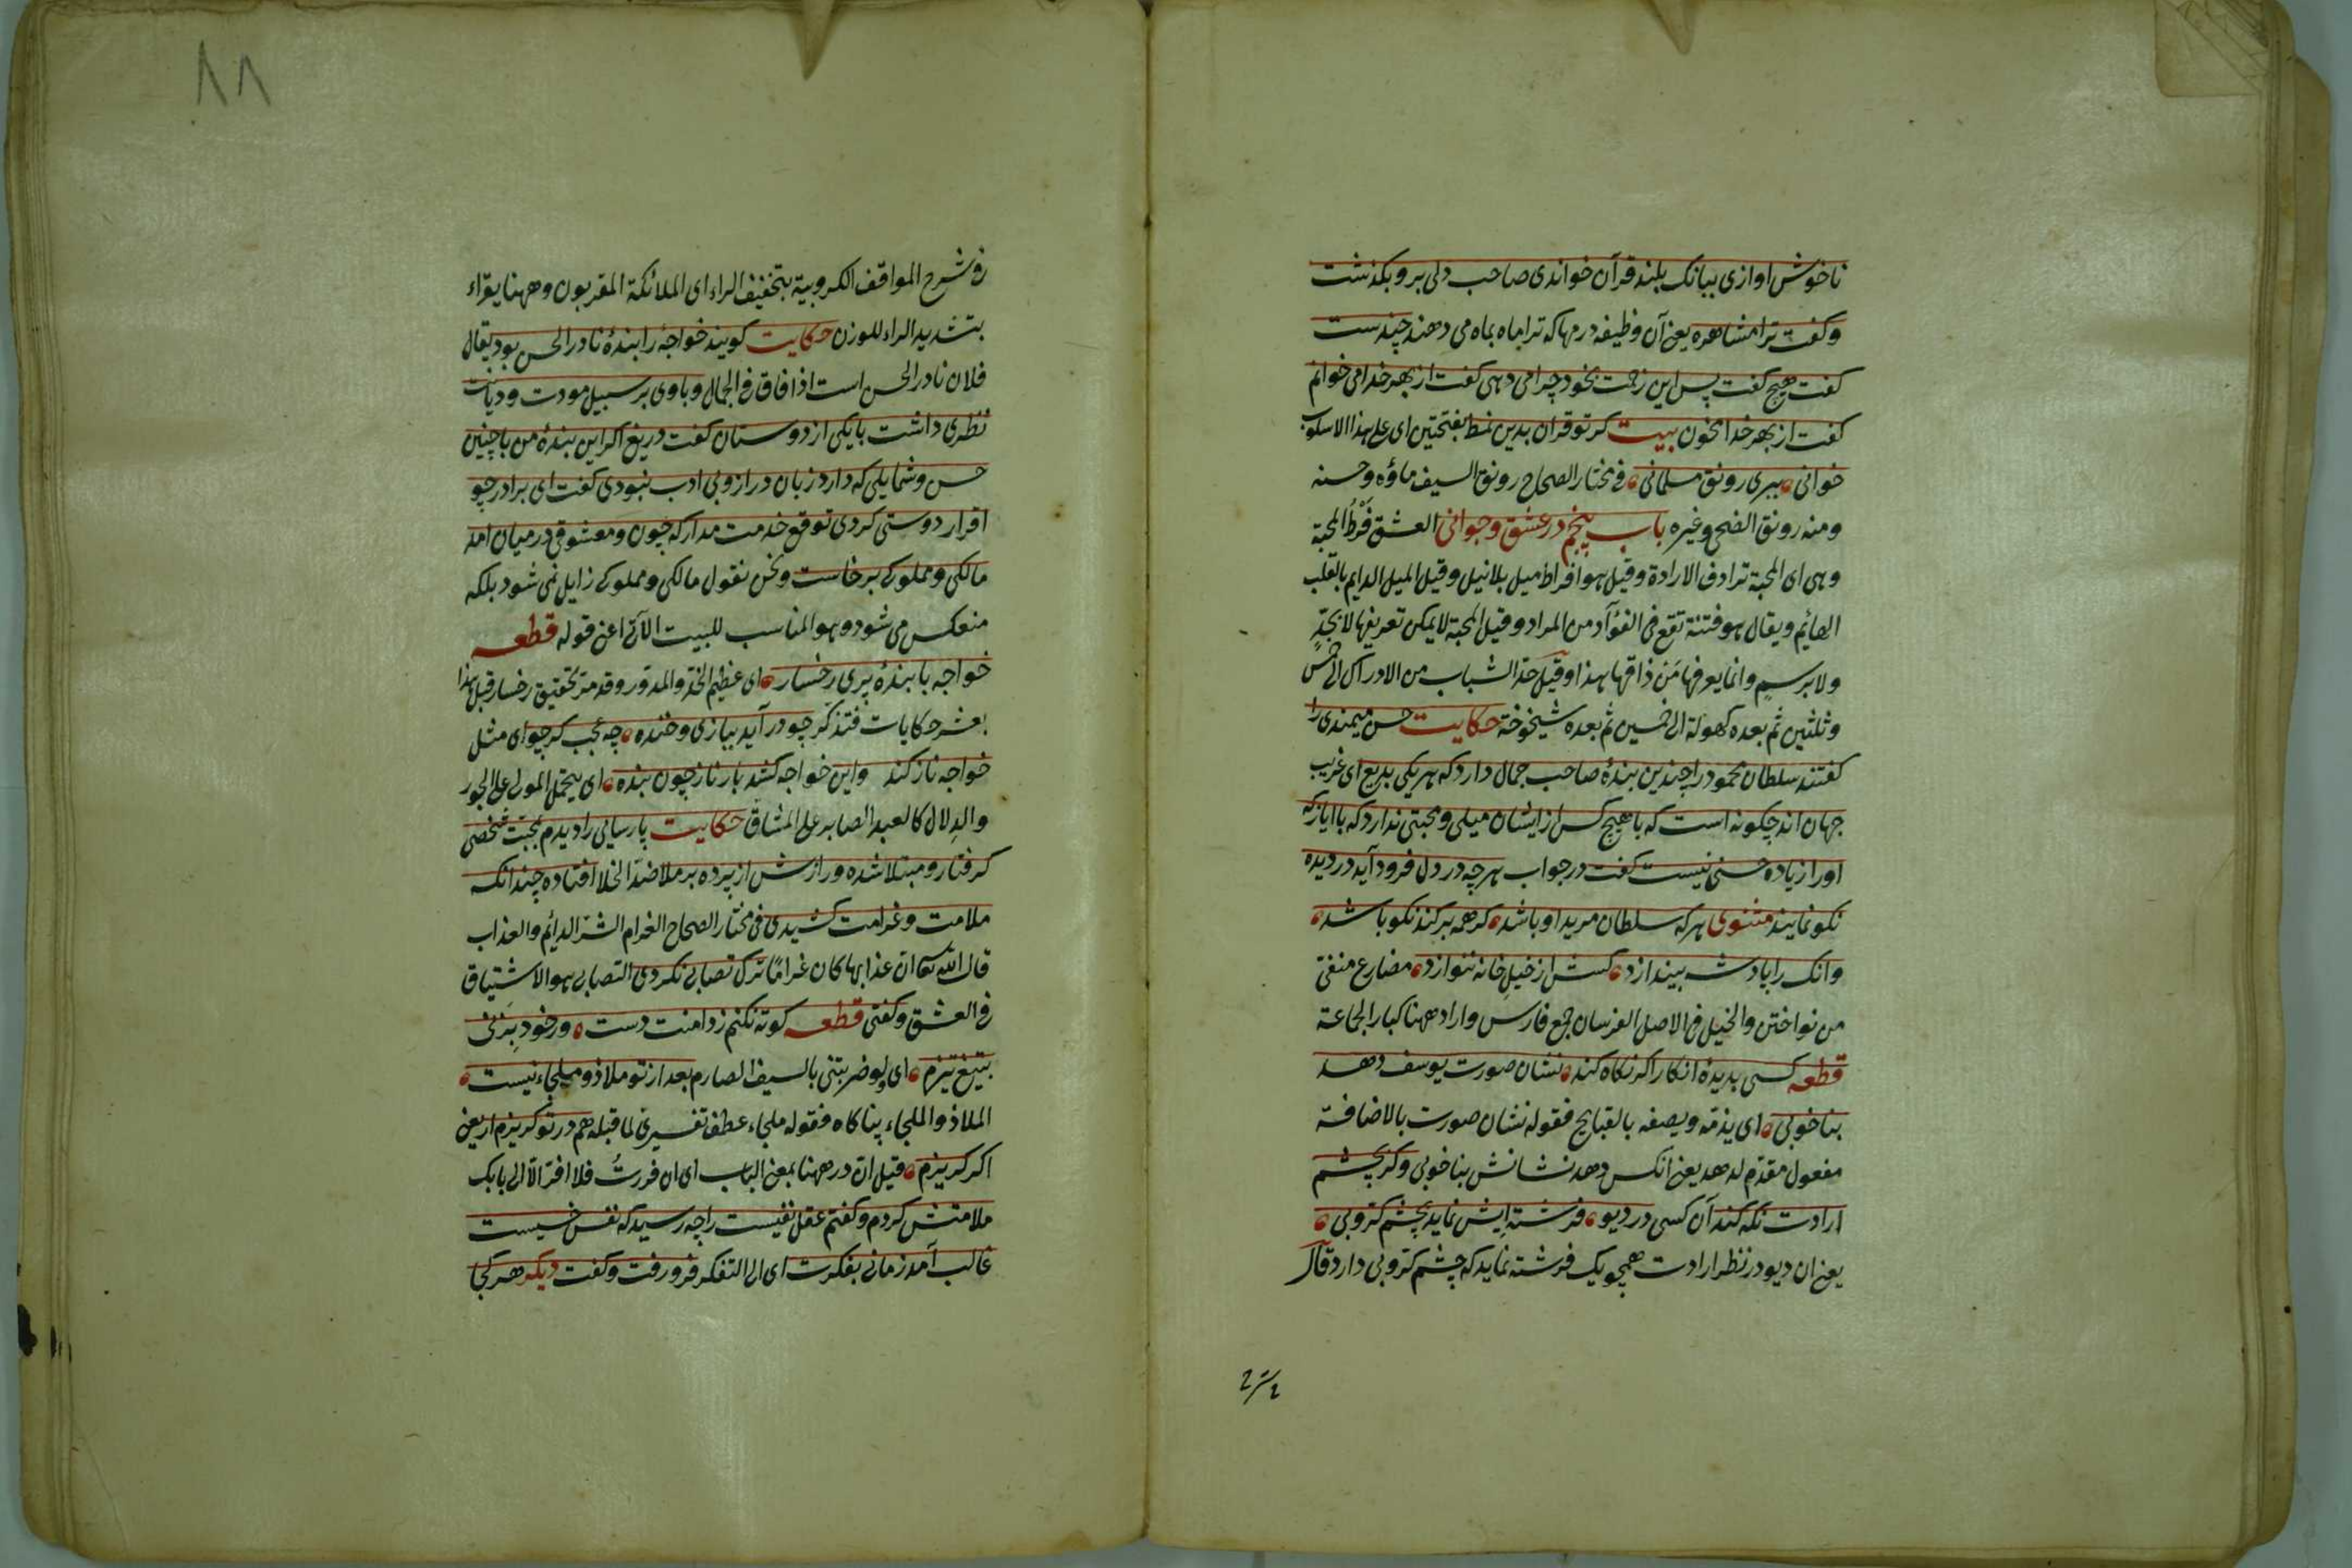 ناخوش اوازی ببانک بلند قرآن خواندی صاحب دلی برو بکذشت
وکفت ترا مشاهره یعنی آن وظیفه درمها که ترا ماه بماه می دهند چندست
کفت هیچ کفت پس این زحمت بخود چرا می دهی کفت از بهر خدا می خوانم
کفت از بهر خدا مخوان بیت کر تو قران بدین نمط بفتحتین ای علی هذا الاسلوب
خوانی ببری رونق مسلمانی فی مختار الصحاح رونق السیف ماؤه وحسنه
ومنه رونق الضحی وغیره باب پنجم در عشق وجوانی العشق فرط المحبة
وهی ای المحبة ترادف الارادة وقیل هو افراط میل بلا نیل وقیل المیل الدایم بالقلب
الهائم ویقال هو فتنة تقع فی الفؤآد من المراد وقیل المحبة لا یمکن تعریفها لا بحدّ
ولا برسم وانما یعرفها مَن ذاقها هذا وقیل حدّ الشباب من الادراک الی خمس
وثلثین ثم بعده کهولة الی خمسین ثم بعده شیخوخة حکایت حسن میمندی را
کفتند سلطان محمود را چندین بندۀ صاحب جمال دارد که هر یکی بدیع ای غریب
جهان اند چکونه است که با هیچ کس از ایشان میلی ومحبتی ندارد که با ایاز که
اورا زیاده حسنی نیست کفت در جواب هر چه در دل فرود آید در دیده
نکو نماید مثنوی هر که سلطان مرید او باشد کر همه بد کند نکو باشد
وانک را پادشه بیندازد کسش از خیل خانه ننوازد مضارع منفی
من نواختن والخیل فی الاصل الفرسان جمع فارس واراد ههنا کبار الجماعة
قطعه کسی بدیدۀ انکار اکر نکاه کند نشان صورت یوسف دهد
بناخوبی ای یذمّه ویصفه بالقبایح فقوله نشان صورت بالاضافة
مفعول مقدّم لدهد یعنی انکس دهد نشانش بناخوبی وکر بچشم
ارادت نکه کند آن کسی در دیو فرشته ایش نماید بچشم کرّوبی
یعنی ان دیو در نظر ارادت همچو یک فرشته نماید که چشم کرّوبی دارد قال
فی شرح المواقف الکروبیة بتخفیف الراء ای الملائکة المقربون وههنا یقراء
بتشدید الراء للوزن حکایت کویند خواجۀ را بندۀ نادر الحسن بود یقال
فلان نادر الحسن است اذا فاق فی الجمال وباوی بر سبیل مودت ودیانت
نظری داشت با یکی از دوستان کفت دریغ اکر این بندۀ من با چنین
حسن وشمایلی که دارد زبان دراز وبی ادب نبودی کفت ای برادر چو
اقرار دوستی کردی توقع خدمت مدار که چون ومعشوقی در میان امد
مالکی ومملوکی برخاست ونحن نقول مالکی ومملوکی زایل نمی شود بلکه
منعکس می شود وهو المناسب للبیت الآتی اعنی قوله قطعه
خواجه با بندۀ پری رخسار ای عظیم الخدّ والمدوّر وقد مرّ تحقیق رخسار قبل هذا
بعشر حکایات فتذکّر چو در آید ببازی وخنده چه عجب کر چو ای مثل
خواجه ناز کند واین خواجه کشد بار ناز چون بنده ای یتحمل المولی علی الجور
والدِلال کالعبد الصابر علی المشاق حکایت پارسایی را دیدم بمحبّت شخصی
کرفتار ومبتلا شده ورازش از پرده بر ملا ضدّ الخلا افتاده چندانکه
ملامت وغرامت کشیدی فی مختار الصحاح الغرام الشرّ الدائم والعذاب
قال اللّه تعا انّ عذابها کان غرامًا ترک تصابی نکردی التصابی هو الاشتیاق
فی العشق وکفتی قطعه کوته نکنم ز دامنت دست ور خود بِزنی
بتیغ تیزم ای ولو ضربتنی بالسیف الصارم بعد از تو ملاذ وملجاء نیست
الملاذ والملجاء پناکاه فقوله ملجاء عطف تفسیری لما قبله هم در تو کریزم ار یعنی
اکر کریزم قیل انّ در ههنا بمعنی الباب ای ان فررتُ فلا افرّ الّا الی بابک
ملامتش کردم وکفتم عقل نفیست را چه رسید که نفس خسیست
غالب آمد زمانی بفکرت ای الی التفکر فرو رفت وکفت دیکر هر کجا
۸۸